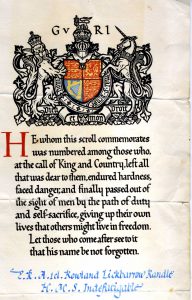 G v R I
HONI SOIT QUI MAL Y PENSE
DIEU ET MON DROIT
HE whom this scroll commemorates
was numbered among those who,
at the call of King and Country, left all
that was dear to them, endured hardness,
faced danger, and finally passed out of
the sight of men by the path of duty
and self-sacrifice, giving up their own
lives that others might live in freedom.
Let those who come after see to it
that his name be not forgotten.
Rowland Lickbarrow Randle
H.M.S. Indefatigable